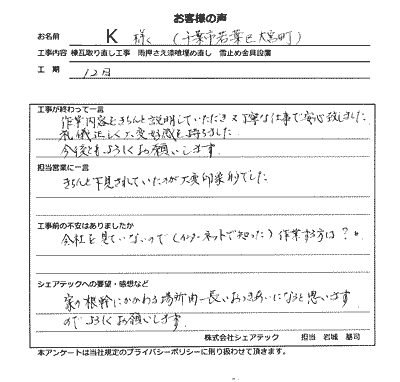 お客様の声
お名前 K 様 (千葉市若葉区大宮町)
工事内容 棟瓦取り直し工事 雨押さえ漆喰埋め直し 雪止め金具設置
工 期 12日
工事が終わって一言
作業内容をきちんと説明していただき又丁寧な仕事で安心致しました
礼儀正しく大変好感を持ちました
今後ともよろしくお願いします
担当営業に一言
きちんと下見されていたのが大変印象的でした
工事前の不安はありましたか
会社を見ていないので(インターネットで知った)作業する方は?
シェアテックへの要望・感想など
家の根幹にかかわる場所 長いおつきあいになると思います
のでよろしくお願いします
株式会社シェアテック 担当 岩城 基司
本アンケートは当社規定のプライバシーポリシーに則り扱わせて頂きます。